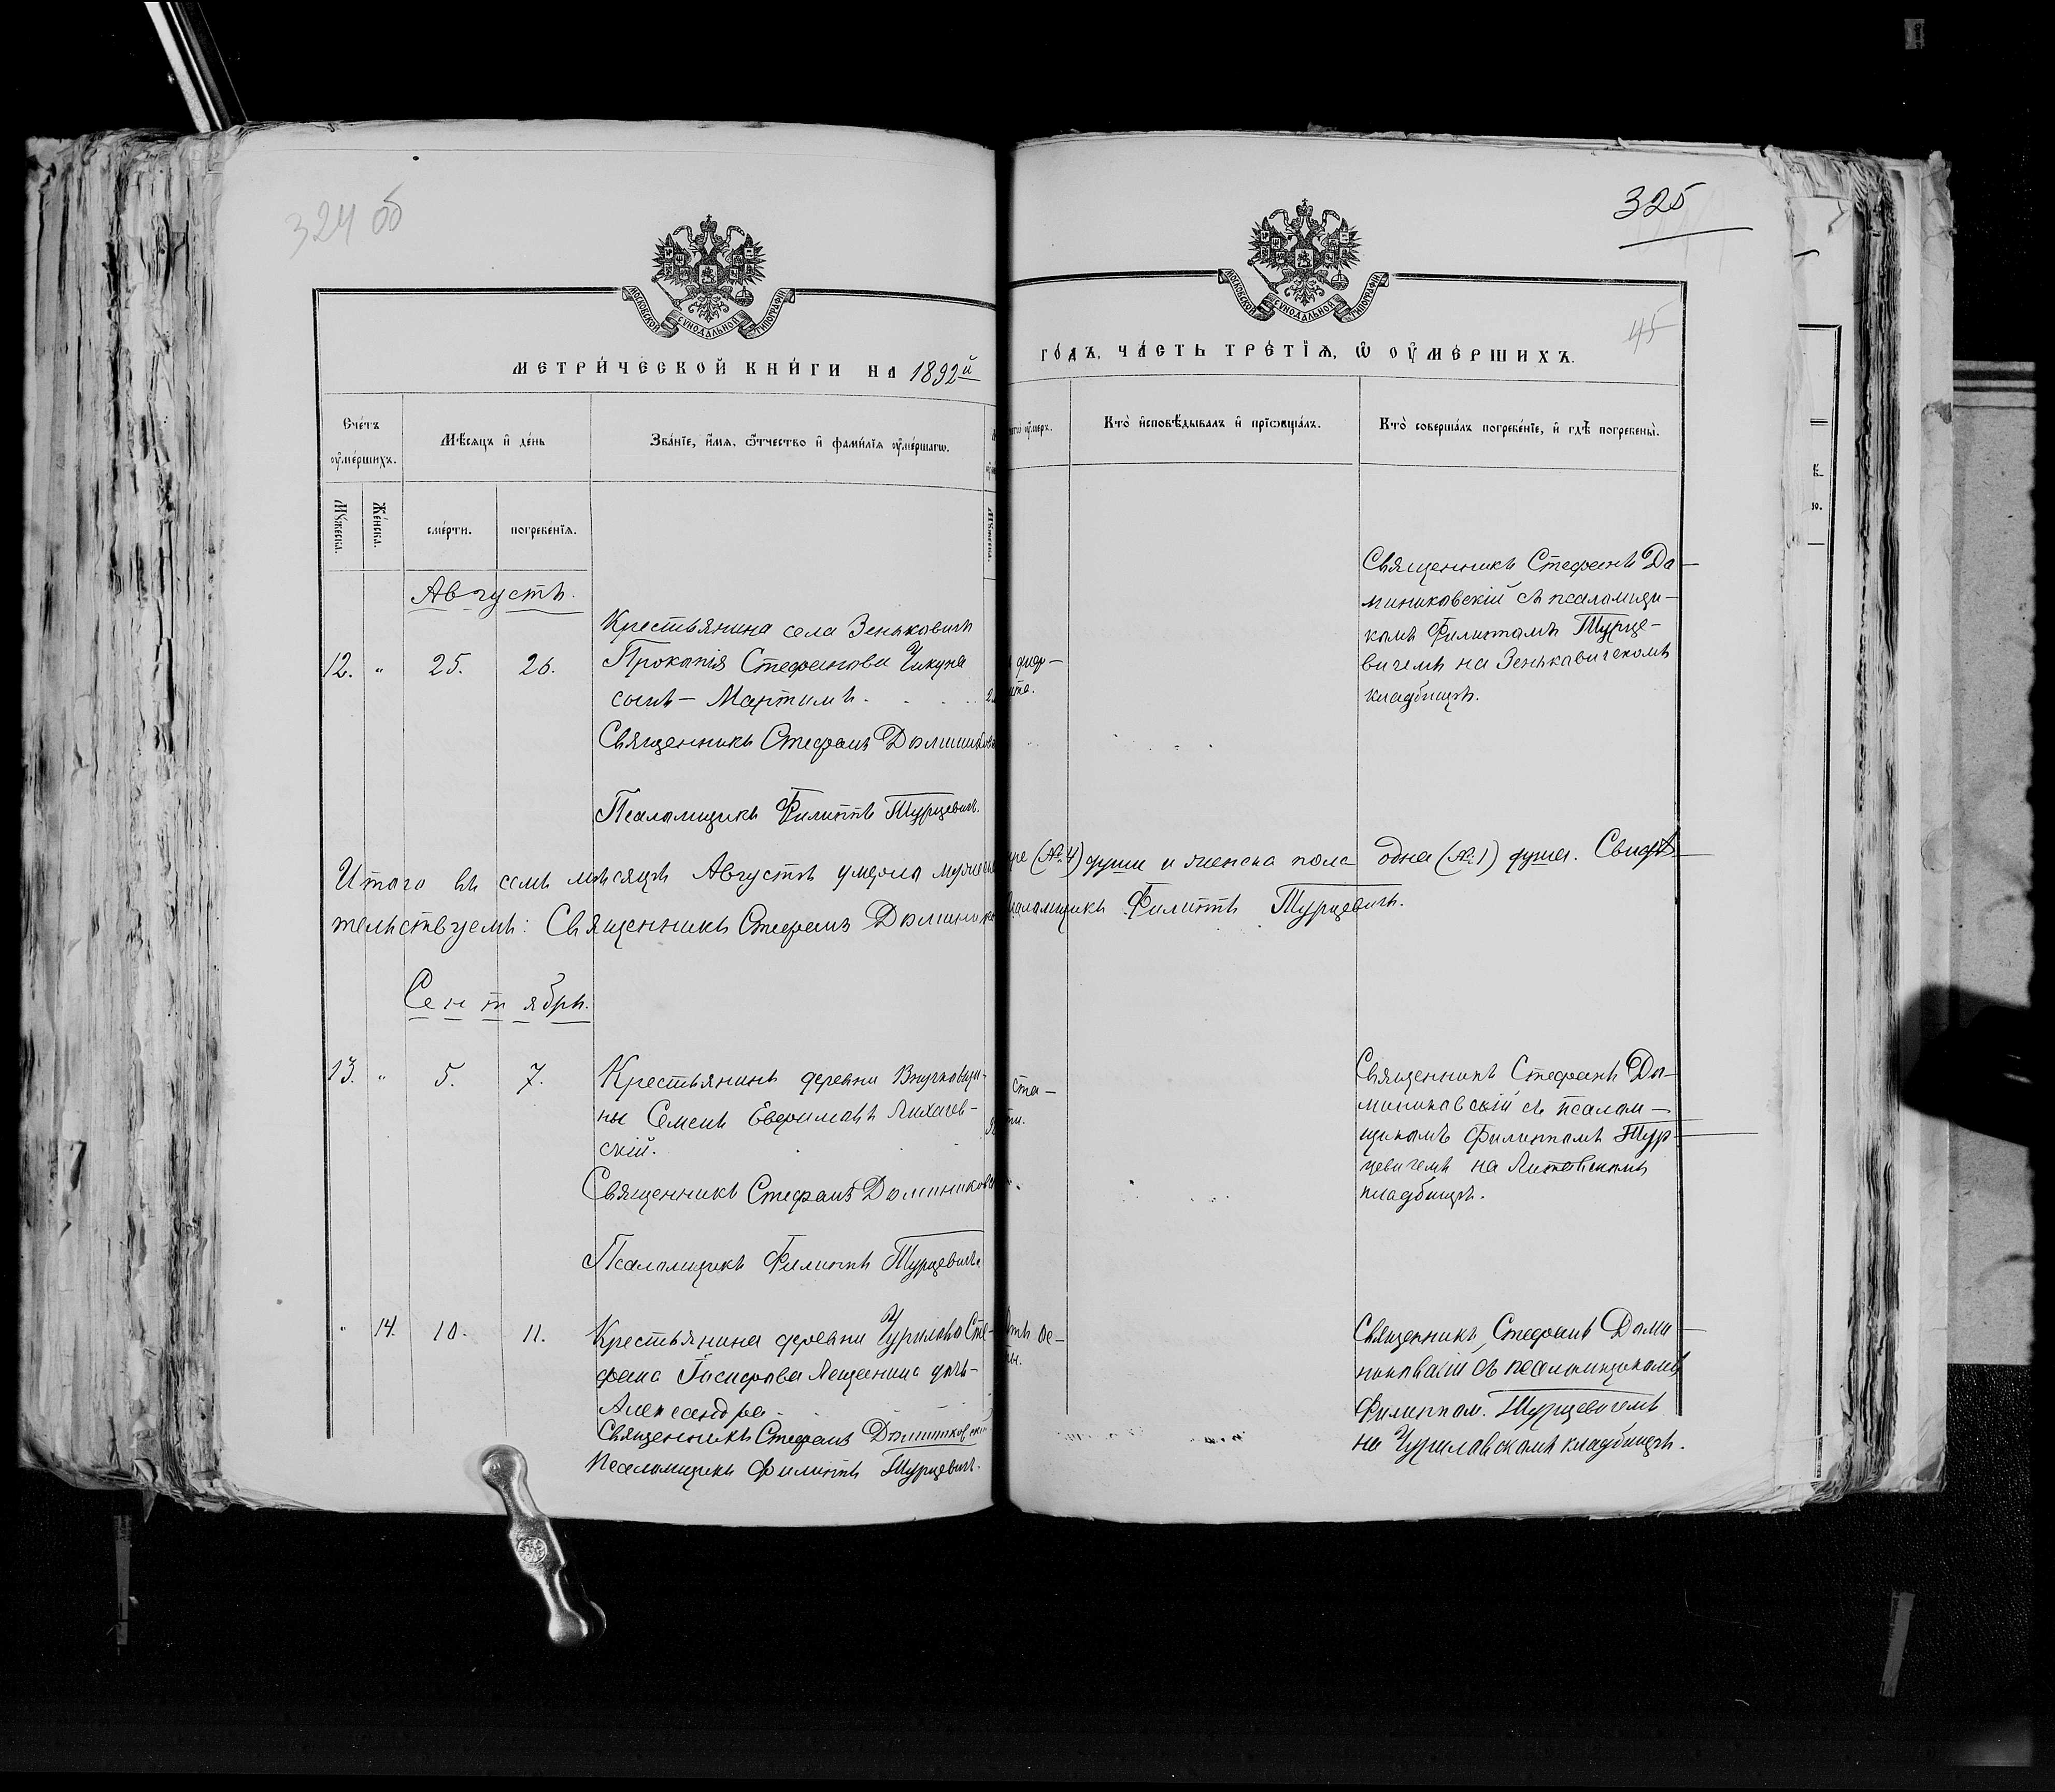 324 об
325
45
МОСКОВСКОЙ СѴНОДАЛЬНОЙ ТИПОГРАФІИ
МОСКОВСКОЙ СѴНОДАЛЬНОЙ ТИПОГРАФІИ
МЕТРИ́ЧЕСКОЙ КНИ́ГИ НА 1892й
ГО́ДЪ, ЧА́СТЬ ТРЕ́ТІѦ, Ѡ ОУМЕ́РШИХЪ.
Сче́тъ оуме́ршихъ.
Мѣ́сѧцъ и де́нь
Зва́ніе, и́мѧ, ѻ́тчество и фами́лїѧ оуме́ршагѡ.
Кто̀ и҆сповѣ́дывалъ и҆ прїѡбща́лъ.
Кто̀ соверша́лъ погребе́нїе, и҆ гдѣ̀ погребены̀.
Мꙋ́жеска.
Же́нска.
сме́рти.
погребе́нїѧ.
Августъ.
12. " 25. 26.
Крестьянина села Зеньковичъ
Прокопія Стефанова Чикуна
сынъ – Мартинъ.
Священникъ Стефанъ
Псаломщикъ Филиппъ Турцевичъ.
Священникъ Стефанъ До-
миниковскій съ псаломщи-
комъ Филиппомъ Турце-
вичемъ на Зеньковичскомъ
кладбищѣ.
Итого въ семъ мѣсяцѣ Августѣ умерло
(№ 4) души и женска пола одна (№ 1) душа. Свидѣ-
тельствуемъ: Священникъ Стефанъ
Филиппъ Турцевичъ.
Сентябрь.
13. " 5. 7.
Крестьянинъ деревни
ны Семенъ Евфимовъ Лихачев-
скій.
Священникъ Стефанъ
Псаломщикъ Филиппъ Турцевичъ
ста-
Священникъ Стефанъ До-
миниковскій съ псалом-
щикомъ Филиппомъ Тур-
цевичемъ на
кладбищѣ.
" 14. 10. 11.
Крестьянина деревни Чурилово Сте-
фана Іосифова дочь-
Александра.
Священникъ Стефанъ Доминиковскій
Псаломщикъ Филиппъ Турцевичъ.
Священникъ Стефанъ Доми-
никовскій съ псаломщикомъ
Филиппом. Турцевичемъ
на Чуриловскомъ кладбищѣ.